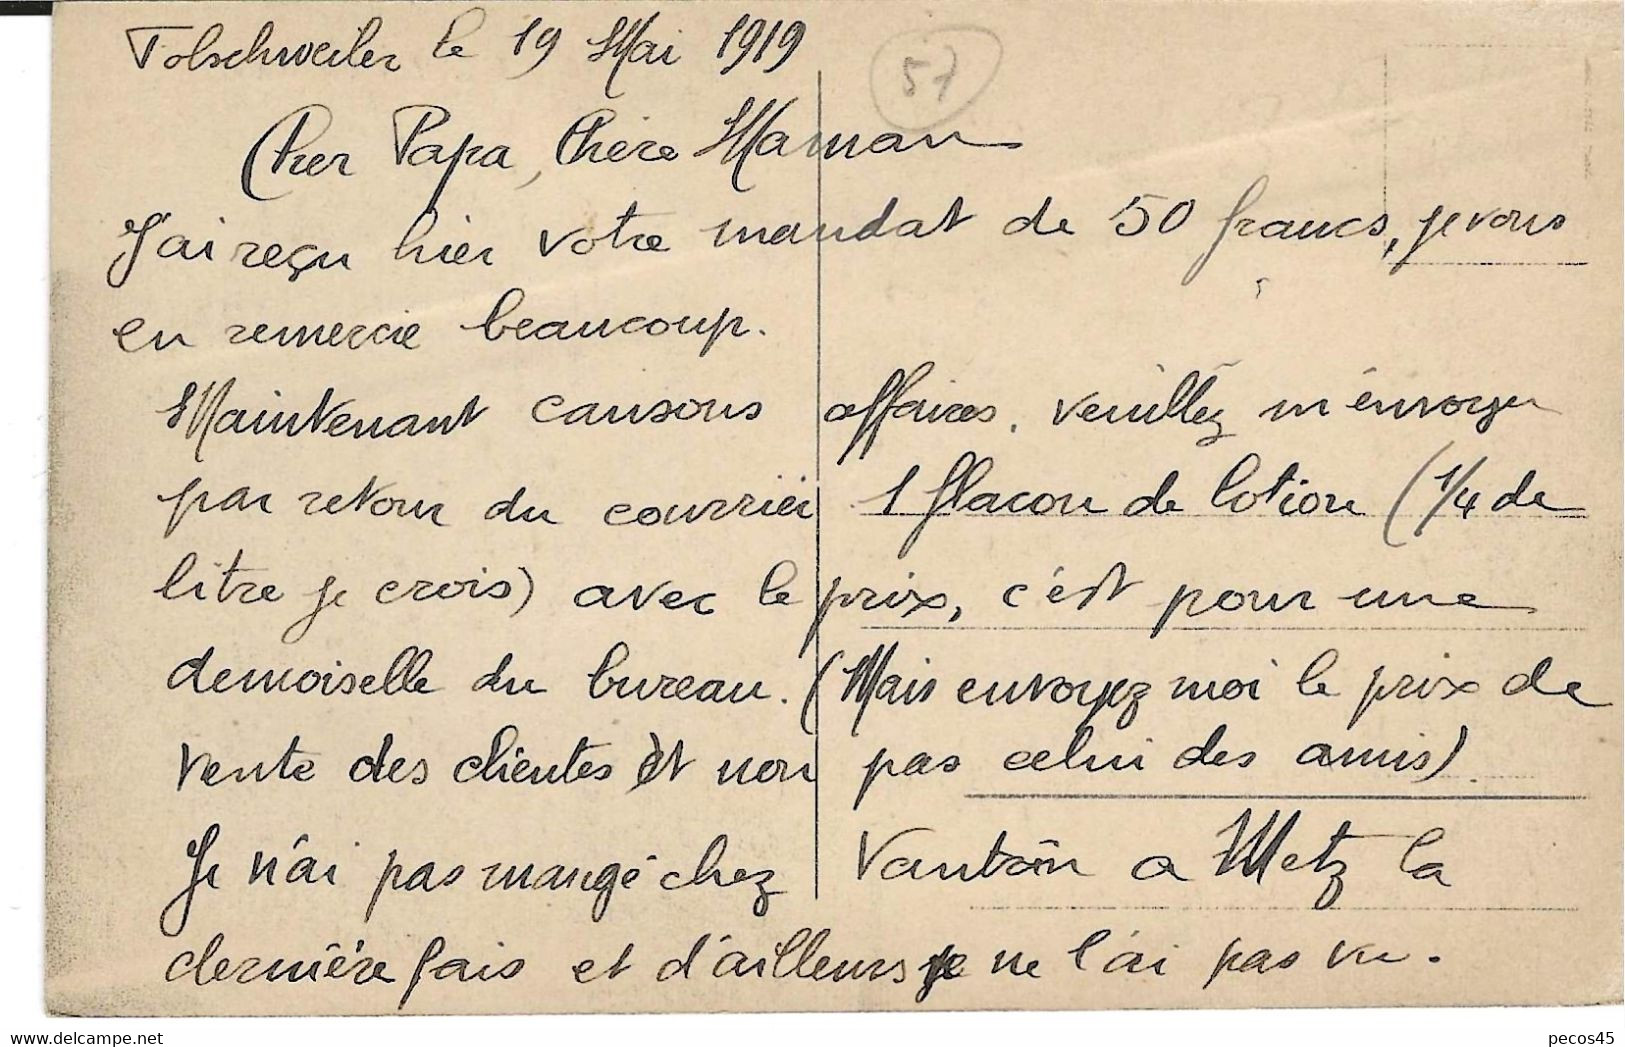 Folschweiler le 19 Mai 1919
57
Cher Papa, Chère Maman
J'ai reçu hier votre mandat de 50 francs, je vous
en remercie beaucoup.
Maintenant causons affaires, veuillez m'envoyer
par retour du courrier 1 flacon de lotion (1/4 de
litre je crois) avec le prix, c'est pour une
demoiselle du bureau. (Mais envoyez moi le prix de
vente des clientes et non pas celui des amis).
Je n'ai pas mangé chez Vautrin a Metz la
dernière fois et d'ailleurs je ne l'ai pas vu.
www.delcampe.net
pecos45